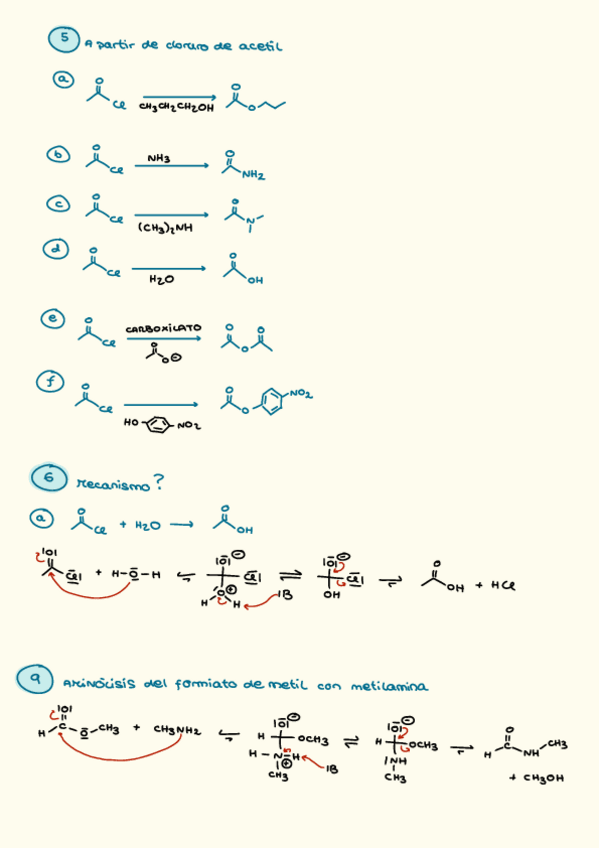 5 A partir de cloruro de acetil
a
O
Cl
CH3CH2CH2OH
O
O
b
O
Cl
NH3
O
NH2
c
O
Cl
(CH3)2NH
O
N
d
O
Cl
H2O
O
OH
e
O
Cl
CARBOXILATO
O
O⊖
O O
O
f
O
Cl
HO NO2
O
O NO2
6 Mecanismo?
a
O
Cl + H2O → O
OH
|O|
Cl + H-O-H ⇌ |O|⊖ Cl ⇌ |O|⊖ Cl ⇌ O OH + HCl
O⊕
H H IB
OH
9 Aminólisis del formiato de metil con metilamina
|O|
H C O CH3 + CH3NH2 ⇌ |O|⊖ H OCH3 ⇌ |O|⊖ H OCH3 ⇌ O H C NH CH3
H-N-H
⊕
CH3 IB
|NH
CH3
+ CH3OH